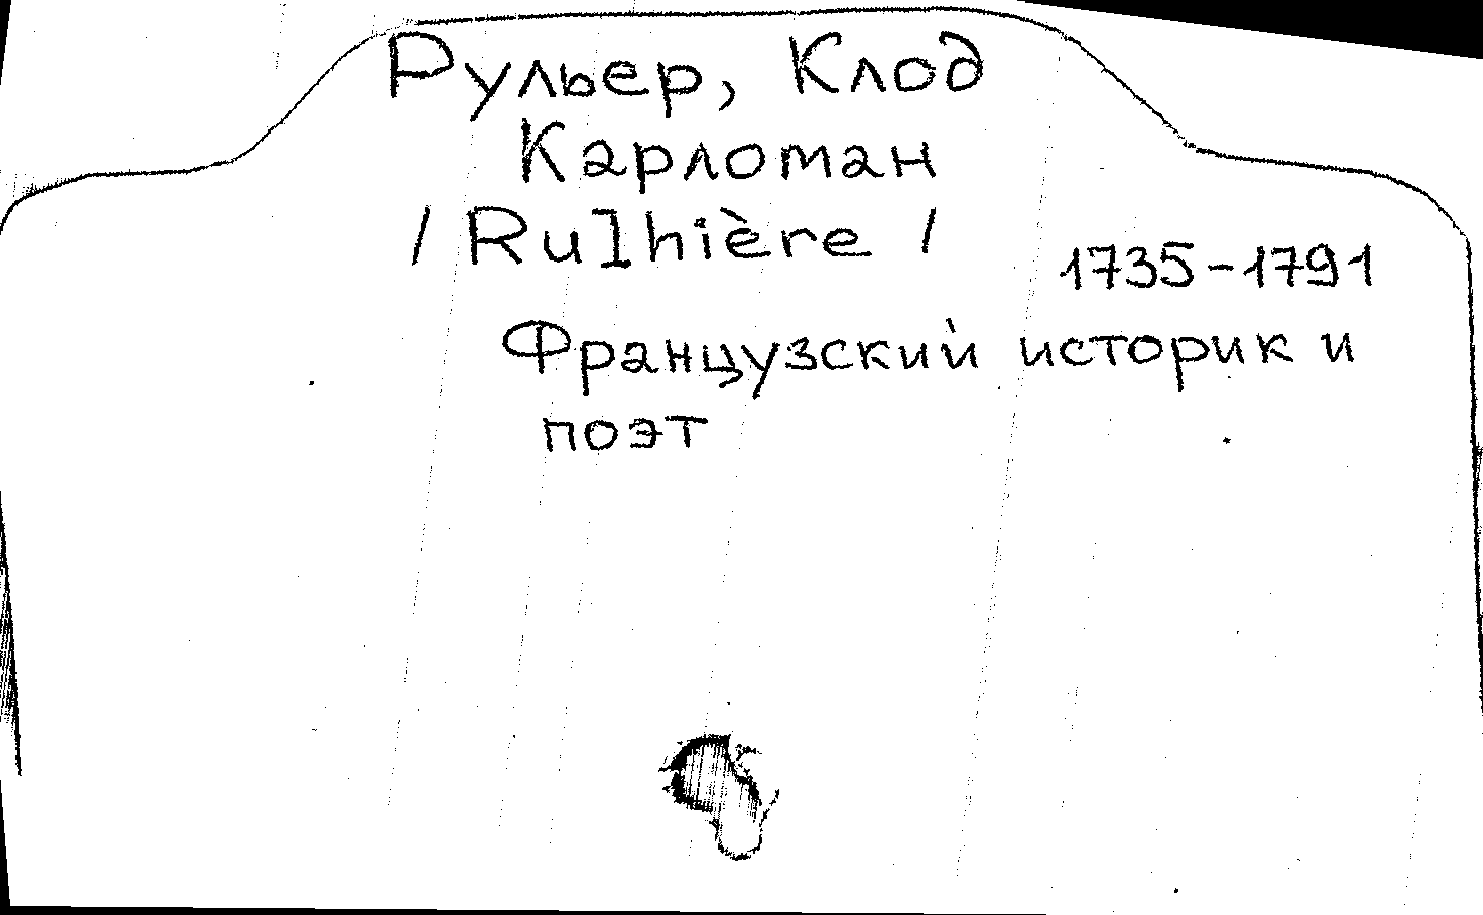 Рульер, Клод
Карломан
/ Rulhière /
1735-1791
Французский историк и
поэт